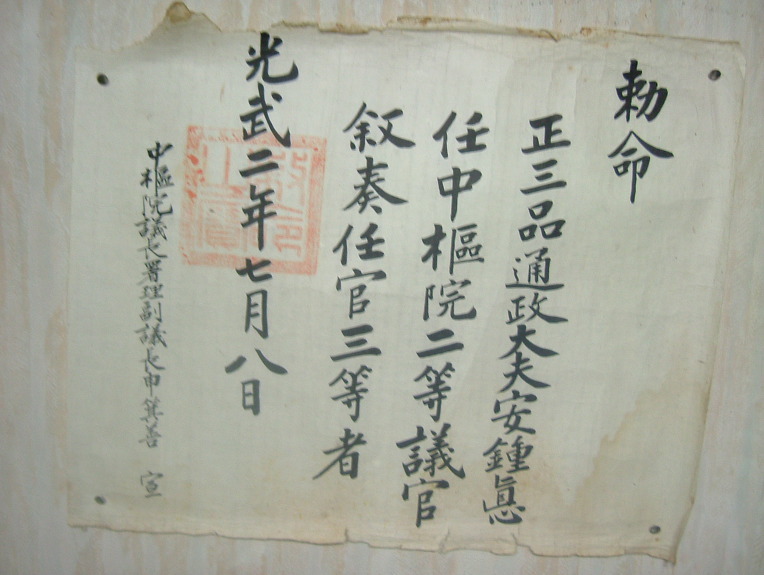 勅命
正三品通政大夫安鍾悳
任中樞院二等議官
叙奏任官三等者
光武二年七月八日
中樞院議長署理副議長申箕善 宣